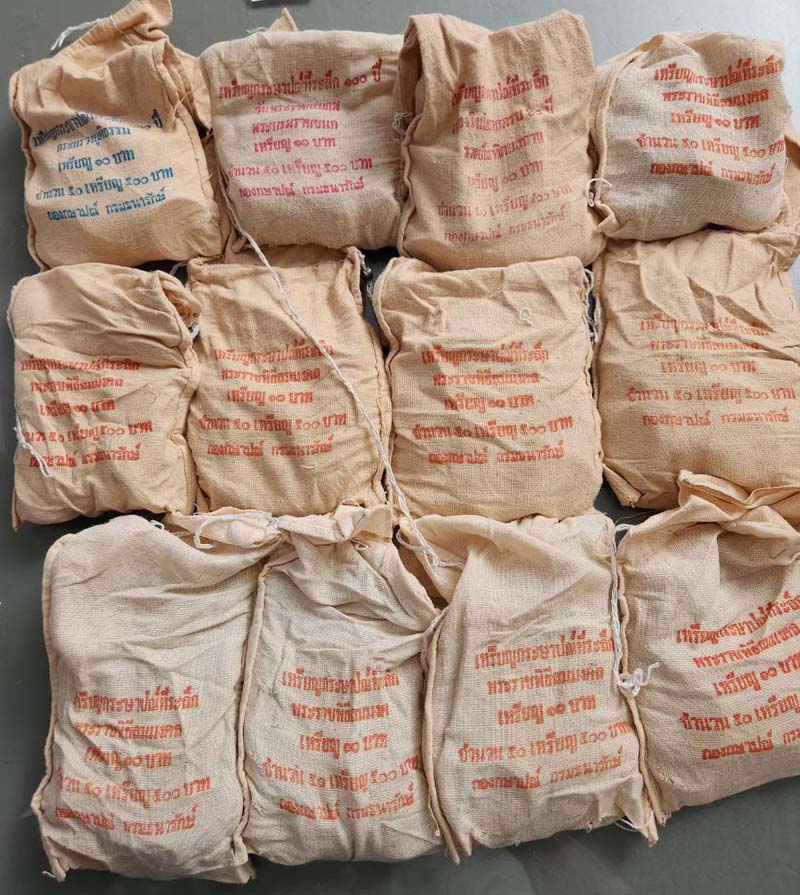 เหรียญกระษาปณ์ที่ระลึก
กระทรวงยุติธรรม ปี
เหรียญ ๑๐ บาท
จำนวน ๕๐ เหรียญ ๕๐๐ บาท
กองกษาปณ์ กรมธนารักษ์
เหรียญกระษาปณ์ที่ระลึก ๑๐๐ ปี
วันพระราชสมภพ
พระบรมราชชนก
เหรียญ ๑๐ บาท
จำนวน ๕๐ เหรียญ ๕๐๐ บาท
กองกษาปณ์ กรมธนารักษ์
เหรียญกระษาปณ์ที่ระลึก
ราชบัณฑิตยสถาน
เหรียญ ๑๐ บาท
จำนวน ๕๐ เหรียญ ๕๐๐ บาท
กองกษาปณ์ กรมธนารักษ์
เหรียญกระษาปณ์ที่ระลึก
พระราชพิธีสมมงคล
เหรียญ ๑๐ บาท
จำนวน ๕๐ เหรียญ ๕๐๐ บาท
กองกษาปณ์ กรมธนารักษ์
เหรียญกระษาปณ์ที่ระลึก
พระราชพิธีสมมงคล
เหรียญ ๑๐ บาท
จำนวน ๕๐ เหรียญ ๕๐๐ บาท
กองกษาปณ์ กรมธนารักษ์
เหรียญกระษาปณ์ที่ระลึก
พระราชพิธีสมมงคล
เหรียญ ๑๐ บาท
จำนวน ๕๐ เหรียญ ๕๐๐ บาท
กองกษาปณ์ กรมธนารักษ์
เหรียญกระษาปณ์ที่ระลึก
พระราชพิธีสมมงคล
เหรียญ ๑๐ บาท
จำนวน ๕๐ เหรียญ ๕๐๐ บาท
กองกษาปณ์ กรมธนารักษ์
เหรียญกระษาปณ์ที่ระลึก
พระราชพิธีสมมงคล
เหรียญ ๑๐ บาท
จำนวน ๕๐ เหรียญ ๕๐๐ บาท
กองกษาปณ์ กรมธนารักษ์
เหรียญกระษาปณ์ที่ระลึก
พระราชพิธีสมมงคล
เหรียญ ๑๐ บาท
จำนวน ๕๐ เหรียญ ๕๐๐ บาท
กองกษาปณ์ กรมธนารักษ์
เหรียญกระษาปณ์ที่ระลึก
พระราชพิธีสมมงคล
เหรียญ ๑๐ บาท
จำนวน ๕๐ เหรียญ ๕๐๐ บาท
กองกษาปณ์ กรมธนารักษ์
เหรียญกระษาปณ์ที่ระลึก
พระราชพิธีสมมงคล
เหรียญ ๑๐ บาท
จำนวน ๕๐ เหรียญ ๕๐๐ บาท
กองกษาปณ์ กรมธนารักษ์
เหรียญกระษาปณ์ที่ระลึก
พระราชพิธีสมมงคล
เหรียญ ๑๐ บาท
จำนวน ๕๐ เหรียญ ๕๐๐
กองกษาปณ์ กรมธนารักษ์